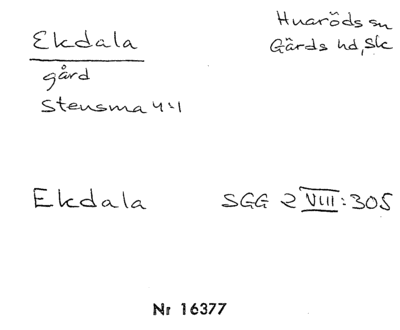 Ekdala
gård
Stensma 4:1
Huaröds sn
Gärds hd, Sk
Ekdala
SGG 2 VIII:305
Nr 16377